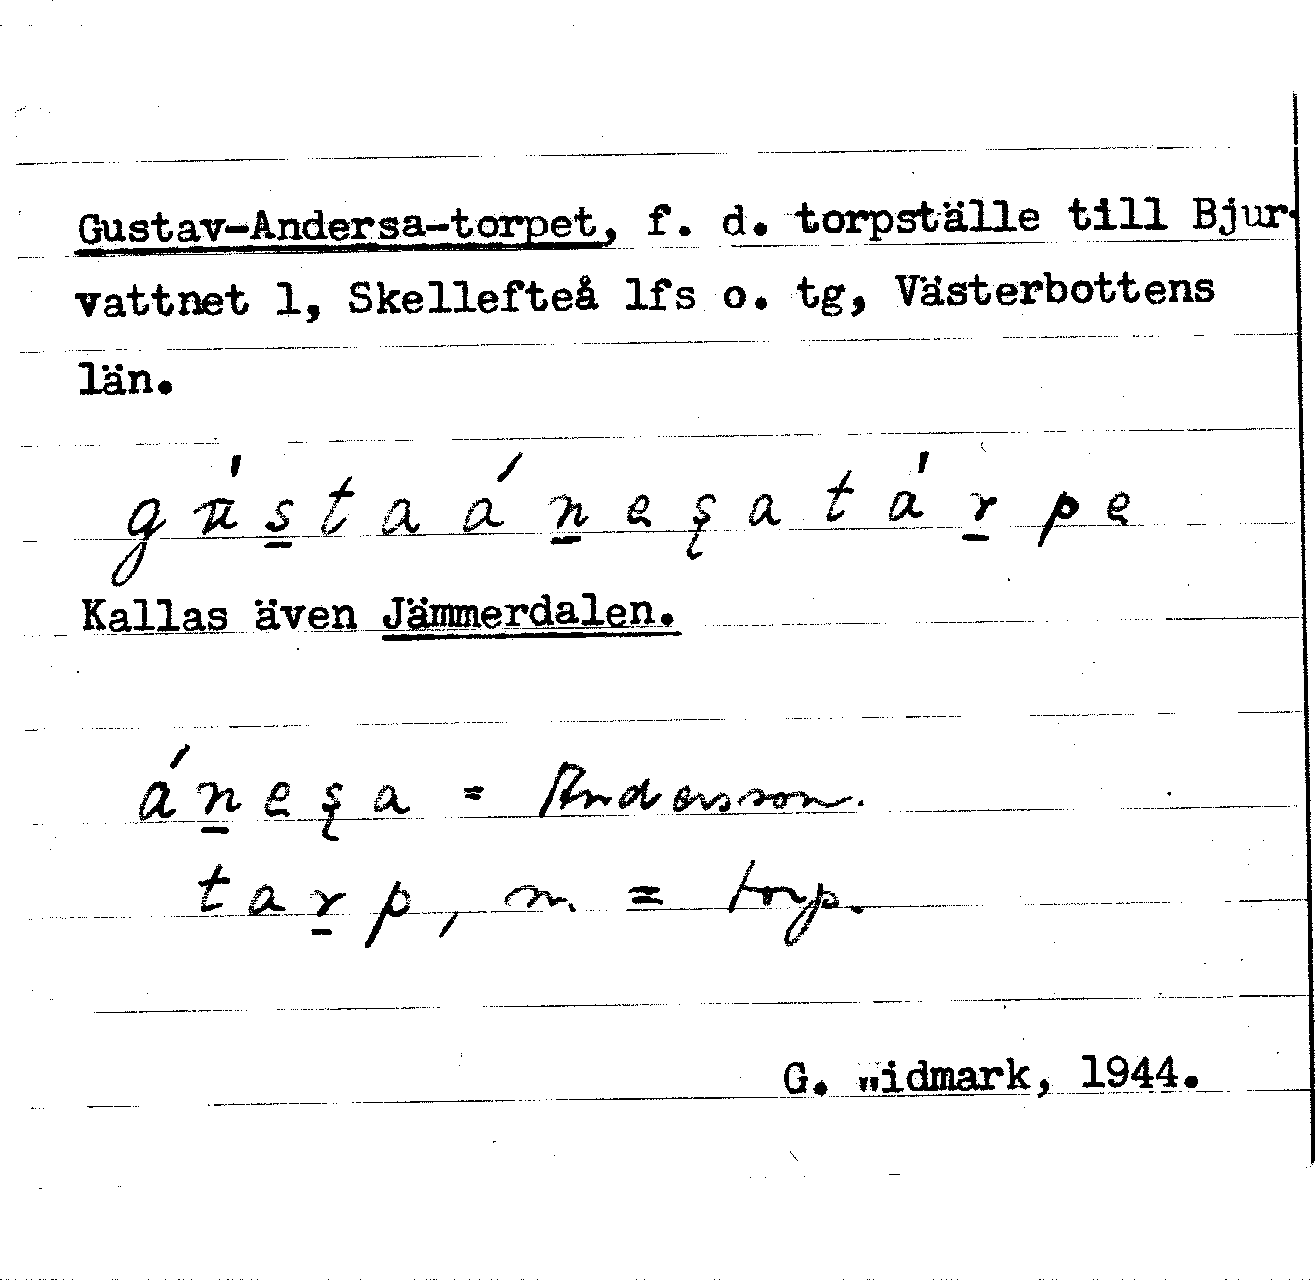 Gustav-Andersa-torpet, f. d. torpställe till Bjur-
vattnet 1, Skellefteå lfs o. tg, Västerbottens
län.
gu̍s̲taán̲eşata̍r̲pe
Kallas även Jämmerdalen.
án̲eşa = Andersson.
tar̲p, m. = torp.
G. Widmark, 1944.